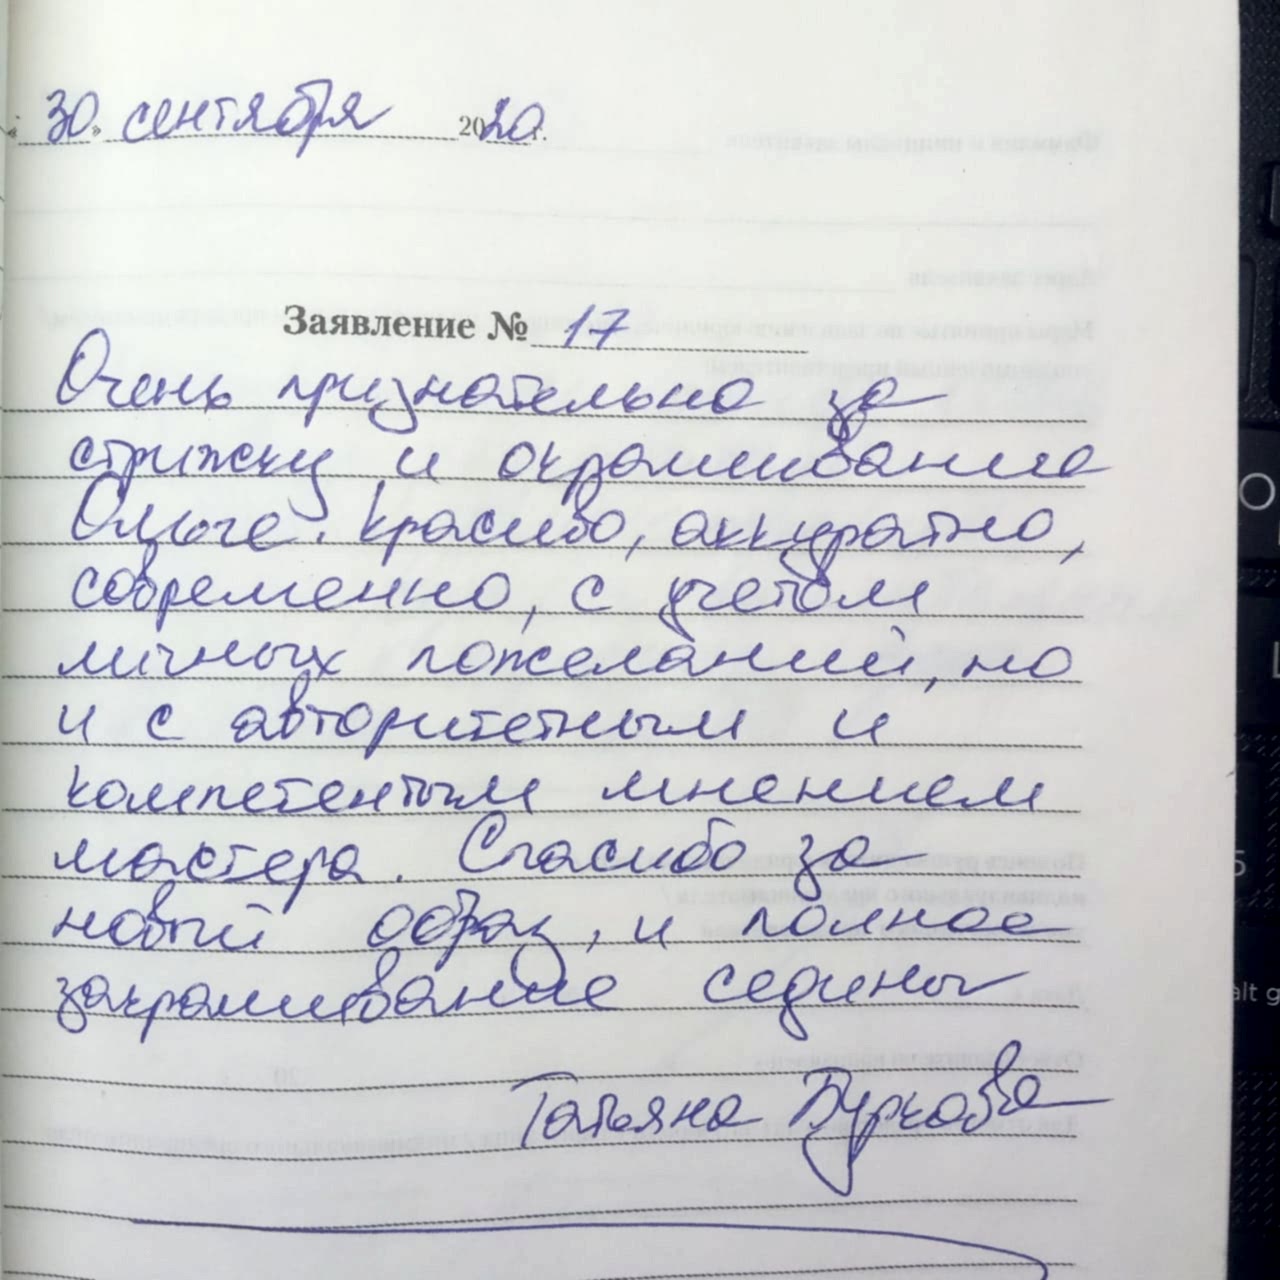 «30» сентября 2020 г.
Заявление № 17
Очень признательна за
стрижку и окрашивание
Ольге. Красиво, аккуратно,
современно, с учетом
личных пожеланий, но
и с авторитетным и
компетентым мнением
мастера. Спасибо за
новый образ, и полное
закрашивание седины
Татьяна Буркова